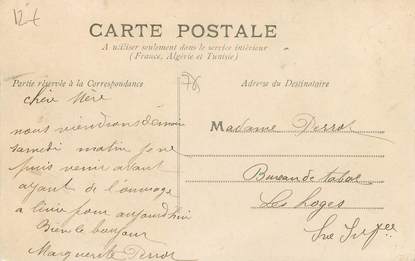 12€
CARTE POSTALE
A utiliser seulement dans le service intérieur
(France, Algérie et Tunisie)
Partie réservée à la Correspondance
78
Adresse du Destinataire
chère Mère
nous viendrons demain
samedi matin je ne
puis venir avant
ayant de l'ouvrage
a livré pour aujourd'hui
Bien le bonjour
Marguerite Derror
Madame Derror
Bureau de tabac
Les Loges